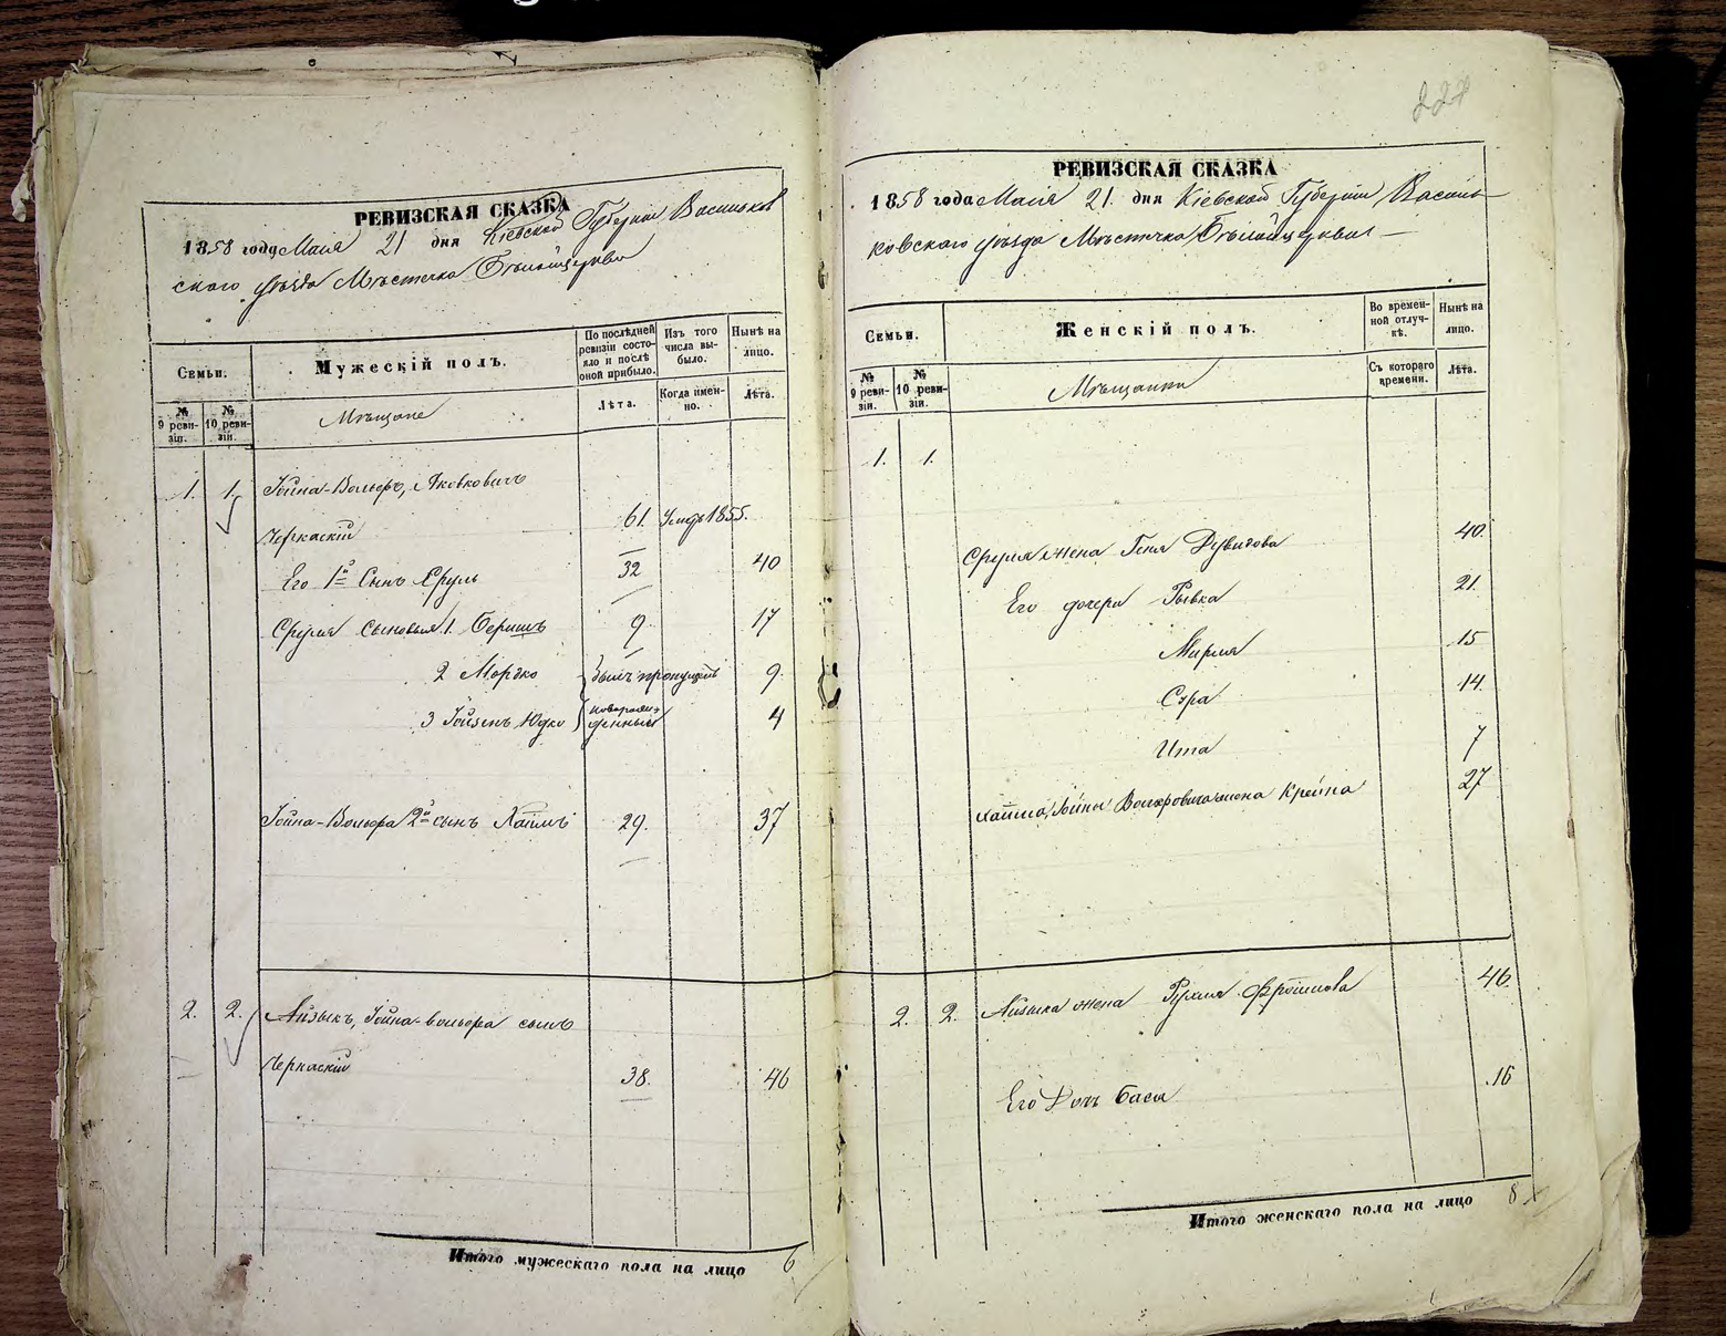 227
РЕВИЗСКАЯ СКАЗКА
1858 года Маія 21 дня Кіевской Губерніи Васильков
скаго уѣзда Мѣстечка Бѣлойцеркви
Семьи.
Мужескій полъ.
По послѣдней ревизіи состояло и послѣ оной прибыло.
Изъ того числа выбыло.
Нынѣ на лицо.
№ 9 ревизіи.
№ 10 ревизіи.
Мѣщане
Лѣта.
Когда именно.
Лѣта.
1. 1. Іойна-Вольфъ, Яковковичъ
Черкаскій 61. Умеръ 1855.
Его 1й Сынъ Сруль 32 40
Сруля Сыновья 1. Беришъ 9. 17
2 Мордко былъ пропущенъ 9.
3 Іойзепъ Юдко новорожденный 4
Іойна-Вольфа 2й сынъ Хаимъ 29. 37
2. 2. Айзыкъ, Іойна-вольфа сынъ
Черкаскій 38. 46
Итого мужескаго пола на лицо 6
РЕВИЗСКАЯ СКАЗКА
1858 года Маія 21. дня Кіевской Губерніи Василь-
ковскаго уѣзда Мѣстечка Бѣлойцеркви
Семьи.
Женскій полъ.
Во временной отлучкѣ.
Нынѣ на лицо.
№ 9 ревизіи.
№ 10 ревизіи.
Мѣщанки
Съ котораго времени.
Лѣта.
1. 1.
Сруля жена Геня Дувидова 40.
Его дочери Рывка 21.
Мирля 15
Сура 14.
Ита 7
Хаима, Іойны Вольфовича жена Крейна 27
2. 2. Айзыка жена Рухля Фроимова 46.
Его Дочь Бася 16
Итого женскаго пола на лицо 8